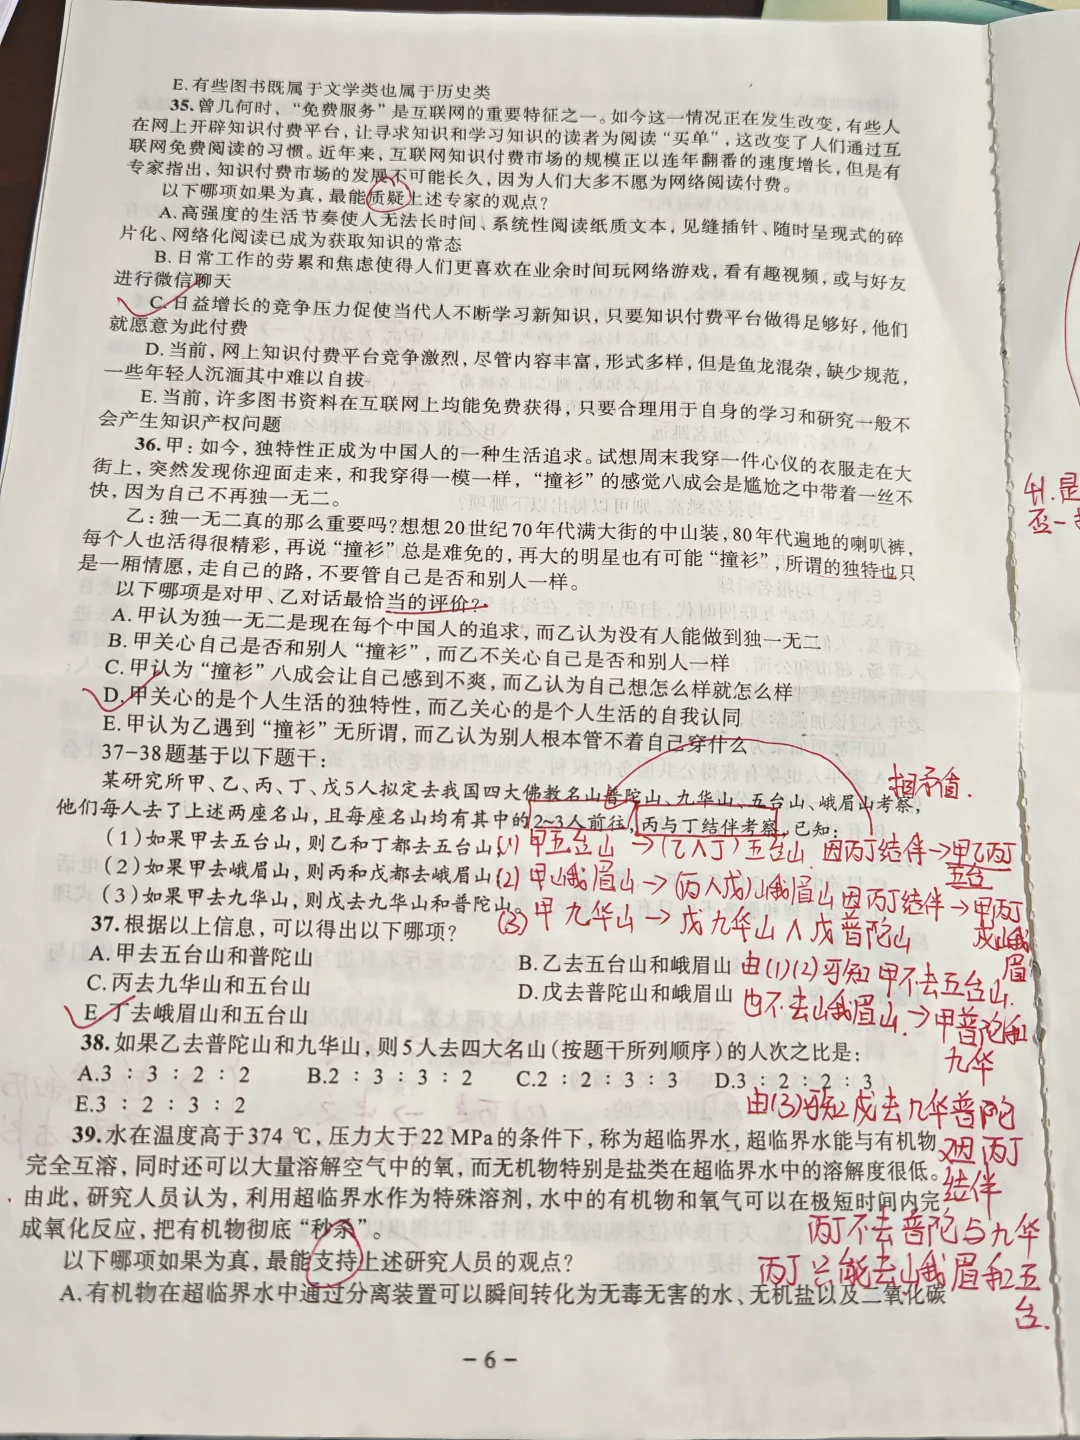 E.有些图书既属于文学类也属于历史类
35.曾几何时，“免费服务”是互联网的重要特征之一。如今这一情况正在发生改变，有些人
在网上开辟知识付费平台，让寻求知识和学习知识的读者为阅读“买单”，这改变了人们通过互
联网免费阅读的习惯。近年来，互联网知识付费市场的规模正以连年翻番的速度增长，但是有
专家指出，知识付费市场的发展不可能长久，因为人们大多不愿为网络阅读付费。
以下哪项如果为真，最能质疑上述专家的观点？
A.高强度的生活节奏使人无法长时间、系统性阅读纸质文本，见缝插针、随时呈现式的碎
片化、网络化阅读已成为获取知识的常态
B.日常工作的劳累和焦虑使得人们更喜欢在业余时间玩网络游戏，看有趣视频，或与好友
进行微信聊天
C.日益增长的竞争压力促使当代人不断学习新知识，只要知识付费平台做得足够好，他们
就愿意为此付费
D.当前，网上知识付费平台竞争激烈，尽管内容丰富，形式多样，但是鱼龙混杂，缺少规范，
一些年轻人沉湎其中难以自拔
E.当前，许多图书资料在互联网上均能免费获得，只要合理用于自身的学习和研究一般不
会产生知识产权问题
36.甲：如今，独特性正成为中国人的一种生活追求。试想周末我穿一件心仪的衣服走在大
街上，突然发现你迎面走来，和我穿得一模一样，“撞衫”的感觉八成会是尴尬之中带着一丝不
快，因为自己不再独一无二。
乙：独一无二真的那么重要吗？想想20世纪70年代满大街的中山装，80年代遍地的喇叭裤，
每个人也活得很精彩，再说“撞衫”总是难免的，再大的明星也有可能“撞衫”，所谓的独特也只
是一厢情愿，走自己的路，不要管自己是否和别人一样。
以下哪项是对甲、乙对话最恰当的评价？
A.甲认为独一无二是现在每个中国人的追求，而乙认为没有人能做到独一无二
B.甲关心自己是否和别人“撞衫”，而乙不关心自己是否和别人一样
C.甲认为“撞衫”八成会让自己感到不爽，而乙认为自己想怎么样就怎么样
D.甲关心的是个人生活的独特性，而乙关心的是个人生活的自我认同
E.甲认为乙遇到“撞衫”无所谓，而乙认为别人根本管不着自己穿什么
37-38题基于以下题干：
某研究所甲、乙、丙、丁、戊5人拟定去我国四大佛教名山普陀山、九华山、五台山、峨眉山考察，
相矛盾.
他们每人去了上述两座名山，且每座名山均有其中的2~3人前往，丙与丁结伴考察。已知：
(1)如果甲去五台山，则乙和丁都去五台山；
(1) 甲五台山→(乙∧丁)五台山 因丙丁结伴→甲乙丙丁
五台
(2)如果甲去峨眉山，则丙和戊都去峨眉山；
(2) 甲峨眉山→(丙∧戊)峨眉山 因丙丁结伴→甲丙丁
戊峨
眉
(3)如果甲去九华山，则戊去九华山和普陀山。
(3) 甲九华山→戊九华山∧戊普陀山
37.根据以上信息，可以得出以下哪项？
A.甲去五台山和普陀山
B.乙去五台山和峨眉山
C.丙去九华山和五台山
D.戊去普陀山和峨眉山
E.丁去峨眉山和五台山
由(1)(2)可知甲不去五台山.
也不去峨眉山.→甲普陀和
九华
38.如果乙去普陀山和九华山，则5人去四大名山(按题干所列顺序)的人次之比是：
A.3：3：2：2
B.2：3：3：2
C.2：2：3：3
D.3：2：2：3
E.3：2：3：2
由(3)可知戊去九华普陀
又因丙丁
结伴
丙丁不去普陀与九华
丙丁只能去峨眉和五
台.
39.水在温度高于374 ℃，压力大于22 MPa的条件下，称为超临界水，超临界水能与有机物
完全互溶，同时还可以大量溶解空气中的氧，而无机物特别是盐类在超临界水中的溶解度很低。
由此，研究人员认为，利用超临界水作为特殊溶剂，水中的有机物和氧气可以在极短时间内完
成氧化反应，把有机物彻底“秒杀”。
以下哪项如果为真，最能支持上述研究人员的观点？
A.有机物在超临界水中通过分离装置可以瞬间转化为无毒无害的水、无机盐以及二氧化碳
-6-
41.是